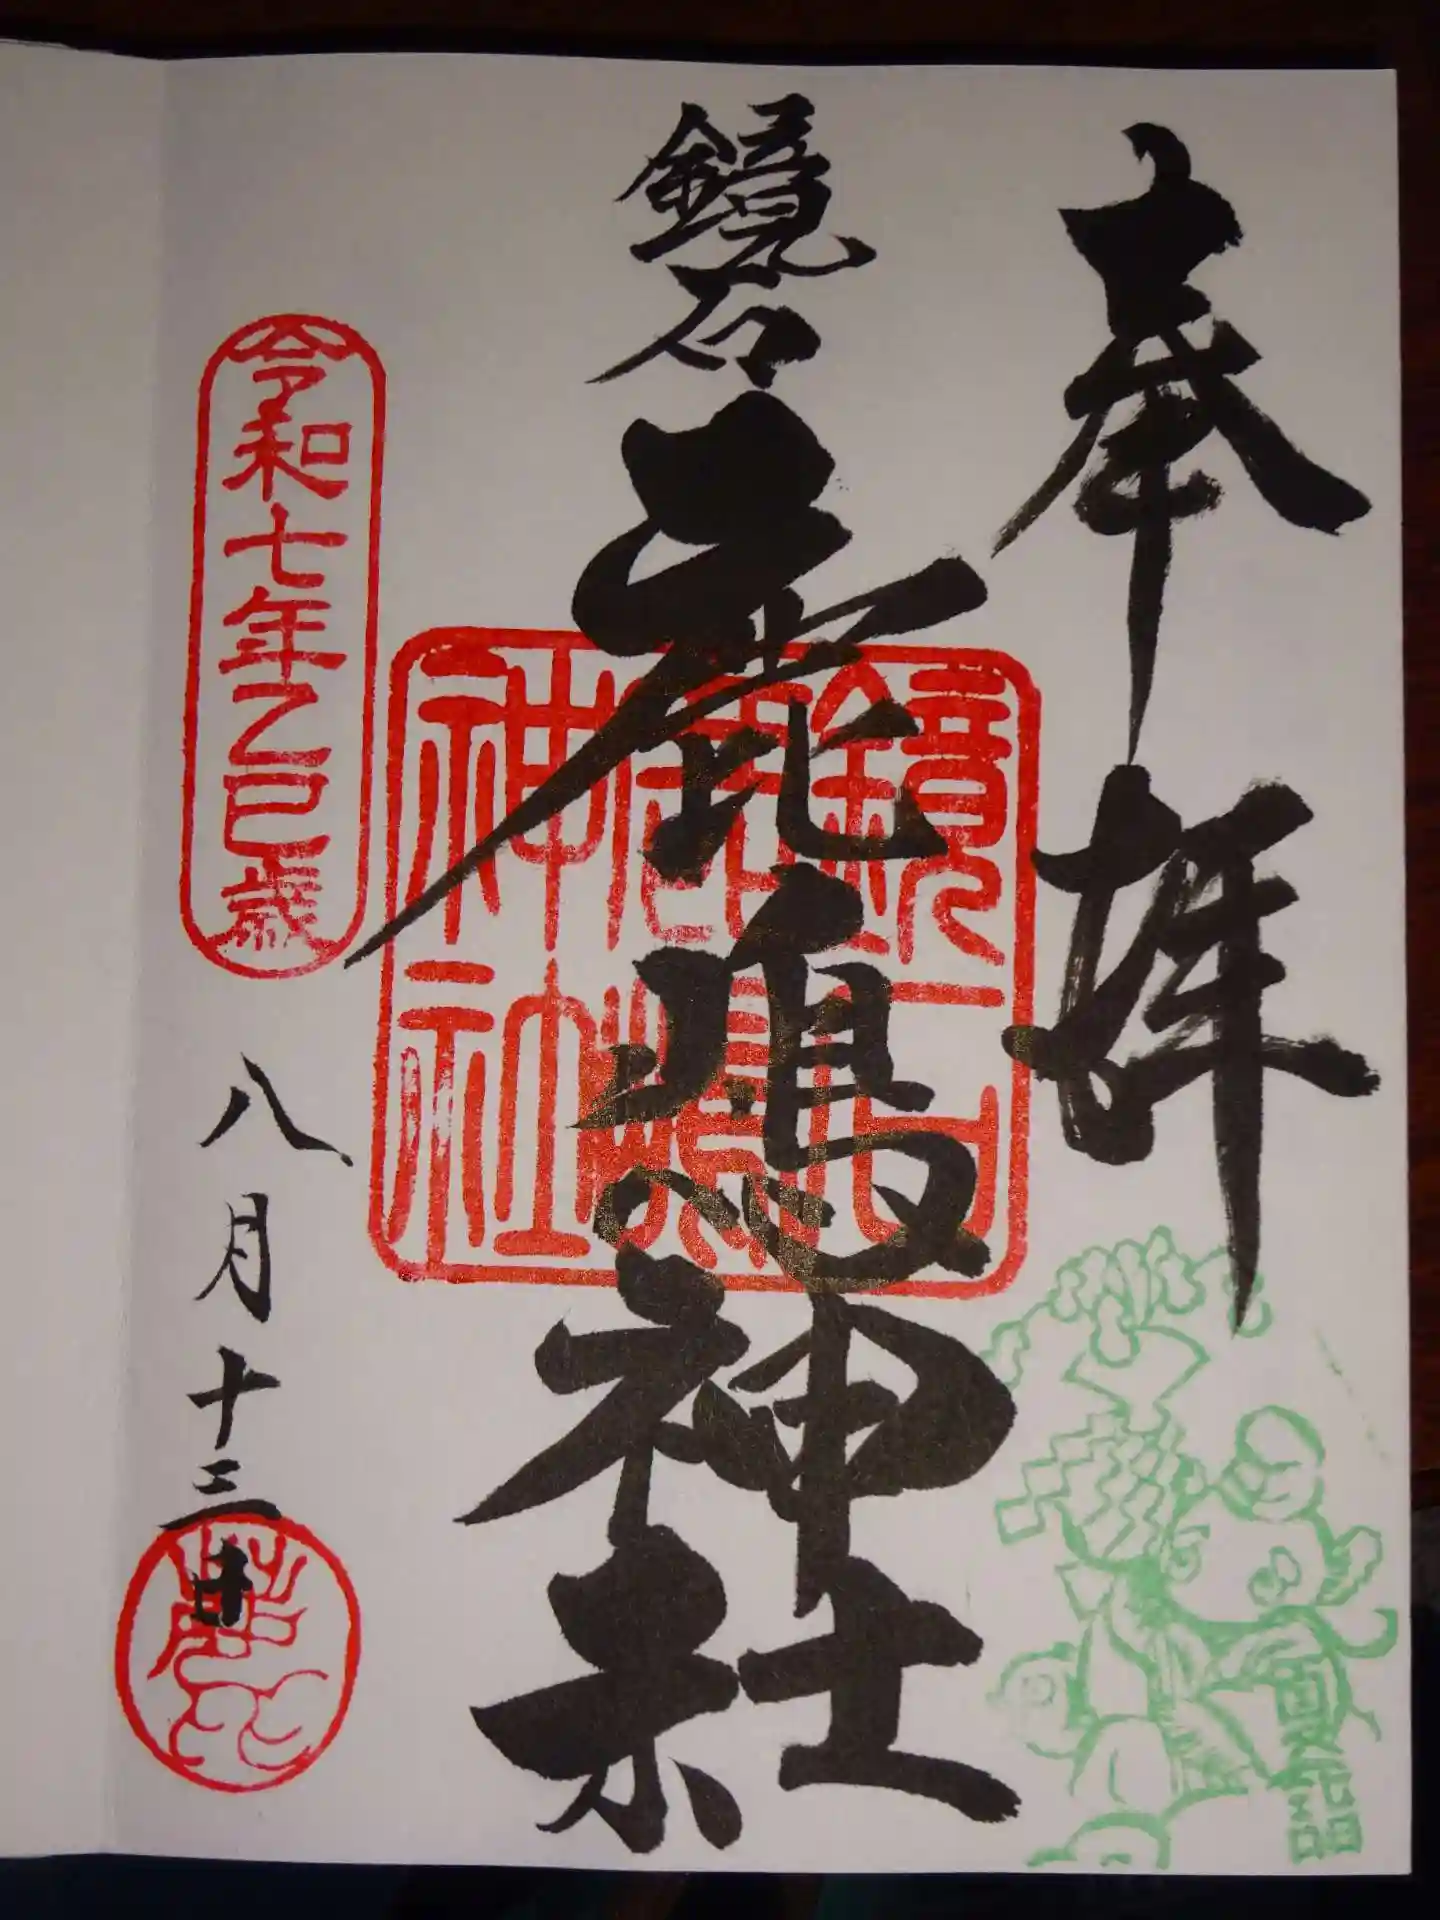 奉拝
鏡石
鹿嶋神社
鏡石
鹿嶋
神社
令和七年乙巳歳
八月十三日
夏詣